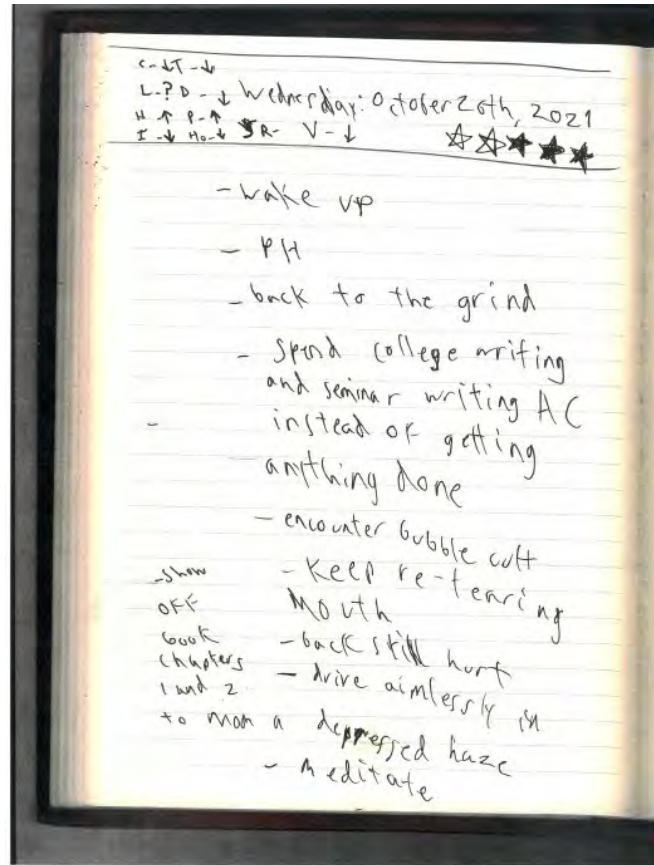 C-↓T-↓
L-? D-↓ Wednesday: October 26th, 2021
H-↑ P-↑
I-↓ Mo-↓ R- V-↓ ☆☆★★★
- wake up
- PH
- back to the grind
- spend college writing
and seminar writing AC
instead of getting
anything done
- encounter bubble cult
- Keep re-tearing
mouth
- back still hurt
- drive aimlessly in
a depressed haze
- meditate
- show
off
book
chapters
1 and 2
to mom